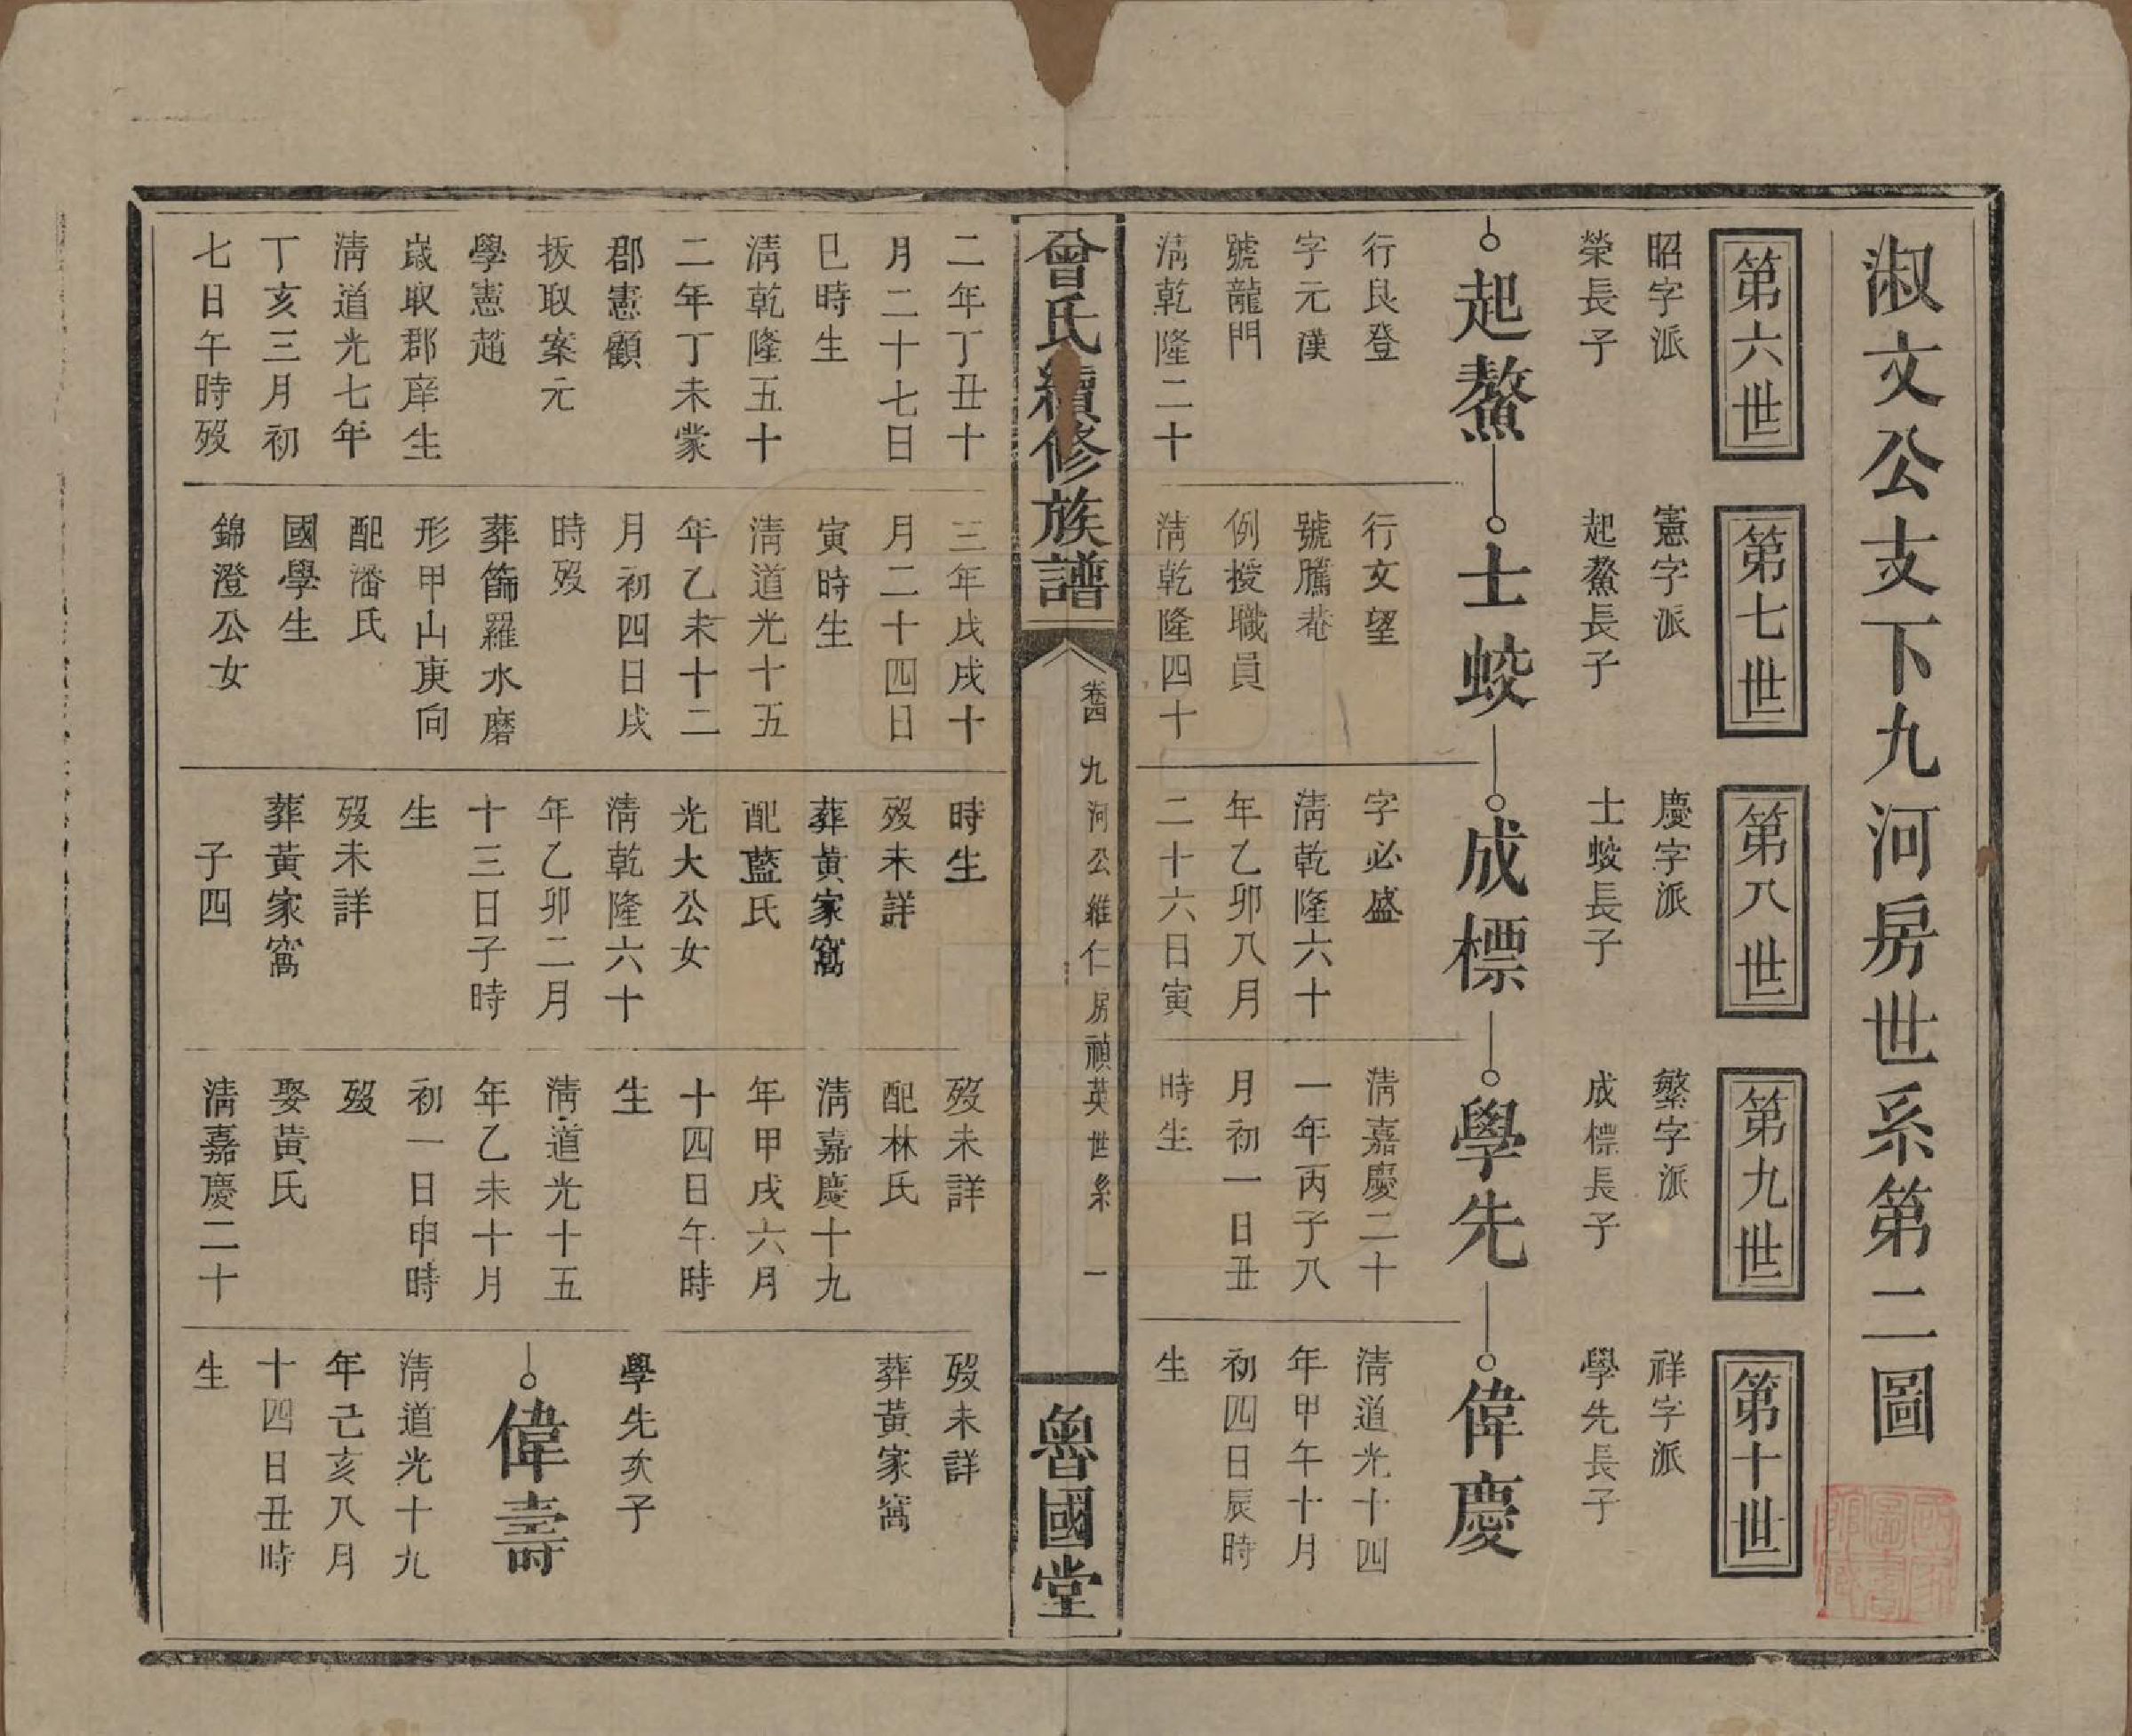 淑文公支下九河房世系第二圖
第六世
昭字派
榮長子
起鰲
行良登
字元漢
號龍門
淸乾隆二十
二年丁丑十
月二十七日
巳時生
淸乾隆五十
二年丁未蒙
郡憲顧
拔取案元
學憲趙
嵗取郡庠生
淸道光七年
丁亥三月初
七日午時歿
第七世
憲字派
起鰲長子
士蛟
行文望
號騰菴
例授職員
淸乾隆四十
三年戊戌十
月二十四日
寅時生
淸道光十五
年乙未十二
月初四日戌
時歿
葬篩羅水磨
形甲山庚向
配潘氏
國學生
錦澄公女
第八世
慶字派
士蛟長子
成標
字必盛
淸乾隆六十
年乙卯八月
二十六日寅
時生
歿未詳
葬黃家窩
配藍氏
光大公女
淸乾隆六十
年乙卯二月
十三日子時
生
歿未詳
葬黃家窩
子四
第九世
繁字派
成標長子
學先
淸嘉慶二十
一年丙子八
月初一日丑
時生
歿未詳
配林氏
淸嘉慶十九
年甲戌六月
十四日午時
生
淸道光十五
年乙未十月
初一日申時
歿
娶黃氏
淸嘉慶二十
第十世
祥字派
學先長子
偉慶
淸道光十四
年甲午十月
初四日辰時
生
歿未詳
葬黃家窩
學先次子
偉壽
淸道光十九
年己亥八月
十四日丑時
生
曾氏續修族譜
卷四 九河公維仁房禎英世系 一
魯國堂